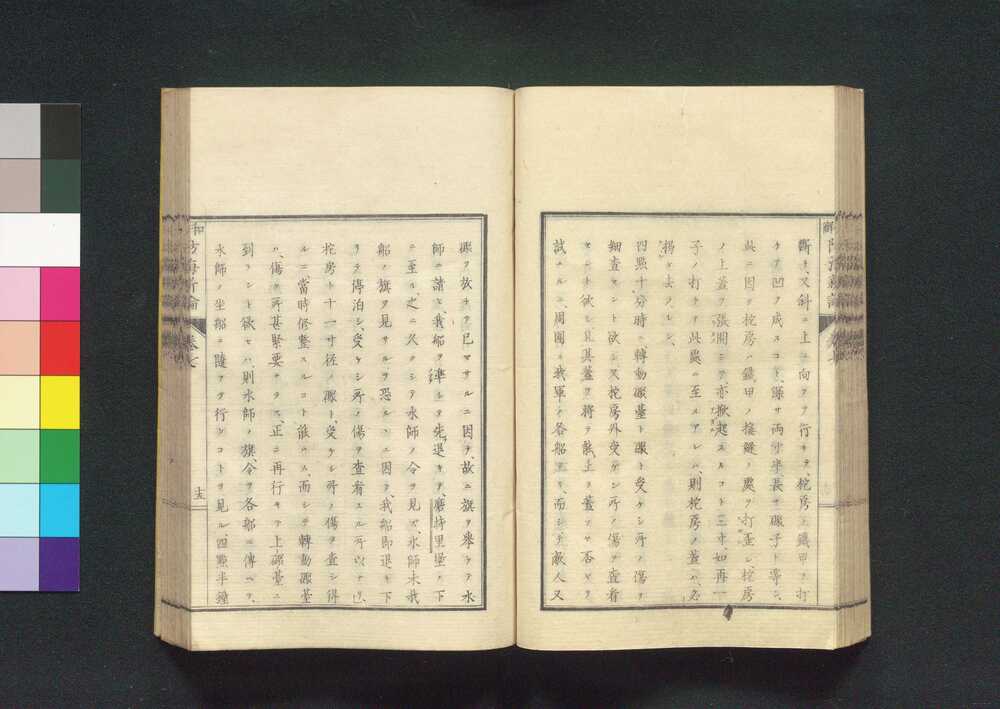 斷キ、又斜ニ上ニ向フテ行キテ、柁房ノ鐵甲ヲ打
ケテ凹ヲ成スコト、深サ兩寸半、長サ礮子ト等シ、
此ニ因テ柁房ハ鐵甲ノ接縫ノ處ヲ打歪シ、柁房
ノ上蓋ヲ張開シテ、亦掀起スルコト三寸、如再一
子ノ打チテ此處ニ至ルアレハ、則柁房ノ蓋ハ、必
揭ケ去ラレン、
四點十分時ニ、轉動礮臺ト礮ト受ケシ所ノ傷ヲ
細查セント欲シ、又柁房外受ケシ所ノ傷ヲ查看
セント欲シ、其蓋ヲ將テ戤上スヘキヤ否ヤヲ
試ムルニ、周圍ニ我軍ノ各船アリ、而シテ敵人又
礮ヲ放チテ已マサルニ因テ、故ニ旗ヲ擧ケテ水
師ニ請ヒ、我船ヲ準シテ先退キテ、磨持里堡ノ下
ニ至ル、之ニ久クシテ水師ノ令ヲ見ズ、水師未我
船ノ旗ヲ見サルヲ恐ルヽニ因テ、我船卽退キ下
リテ停泊シ、受ケシ所ノ傷ヲ查看スル所以ナリ、
柁房ト十一寸徑ノ礮ト、受ケシ所ノ傷ヲ查シ得
ルニ、當時修整スルコト能ハス、而シテ轉動礮臺
ハ、傷ケ所甚緊要ナラス、正ニ再行キテ上礮臺ニ
到ラント欲セハ、則水師ノ旗、令ヲ各船ニ傳ヘテ、
水師ノ坐船ニ隨ヲテ行ンコトヲ見ル、四點半鐘
防海新論
卷七
十五